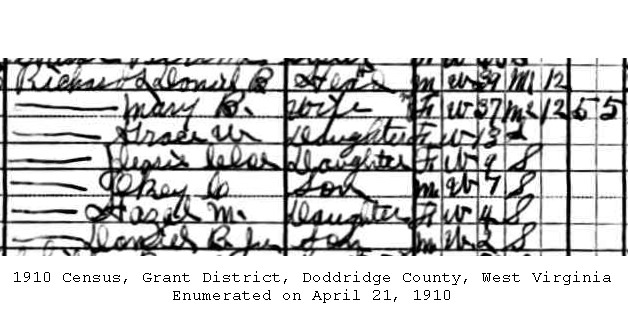 Daniel B Head m W 39 M1 12
Mary B. Wife F W 37 M2 12 5 5
Grace W Daughter F W 13 S
Jessie Daughter F W 9 S
Okey C Son m W 7 S
Hazel M. Daughter F W 4 S
Daniel B Jr Son m W 2 S
1910 Census, Grant District, Doddridge County, West Virginia
Enumerated on April 21, 1910